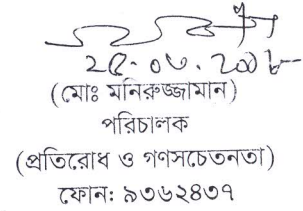 ২৫.০৬.২০১৮
(মোঃ মনিরুজ্জামান)
পরিচালক
(প্রতিরোধ ও গণসচেতনতা)
ফোন: ৯৩৬২৪৩৭